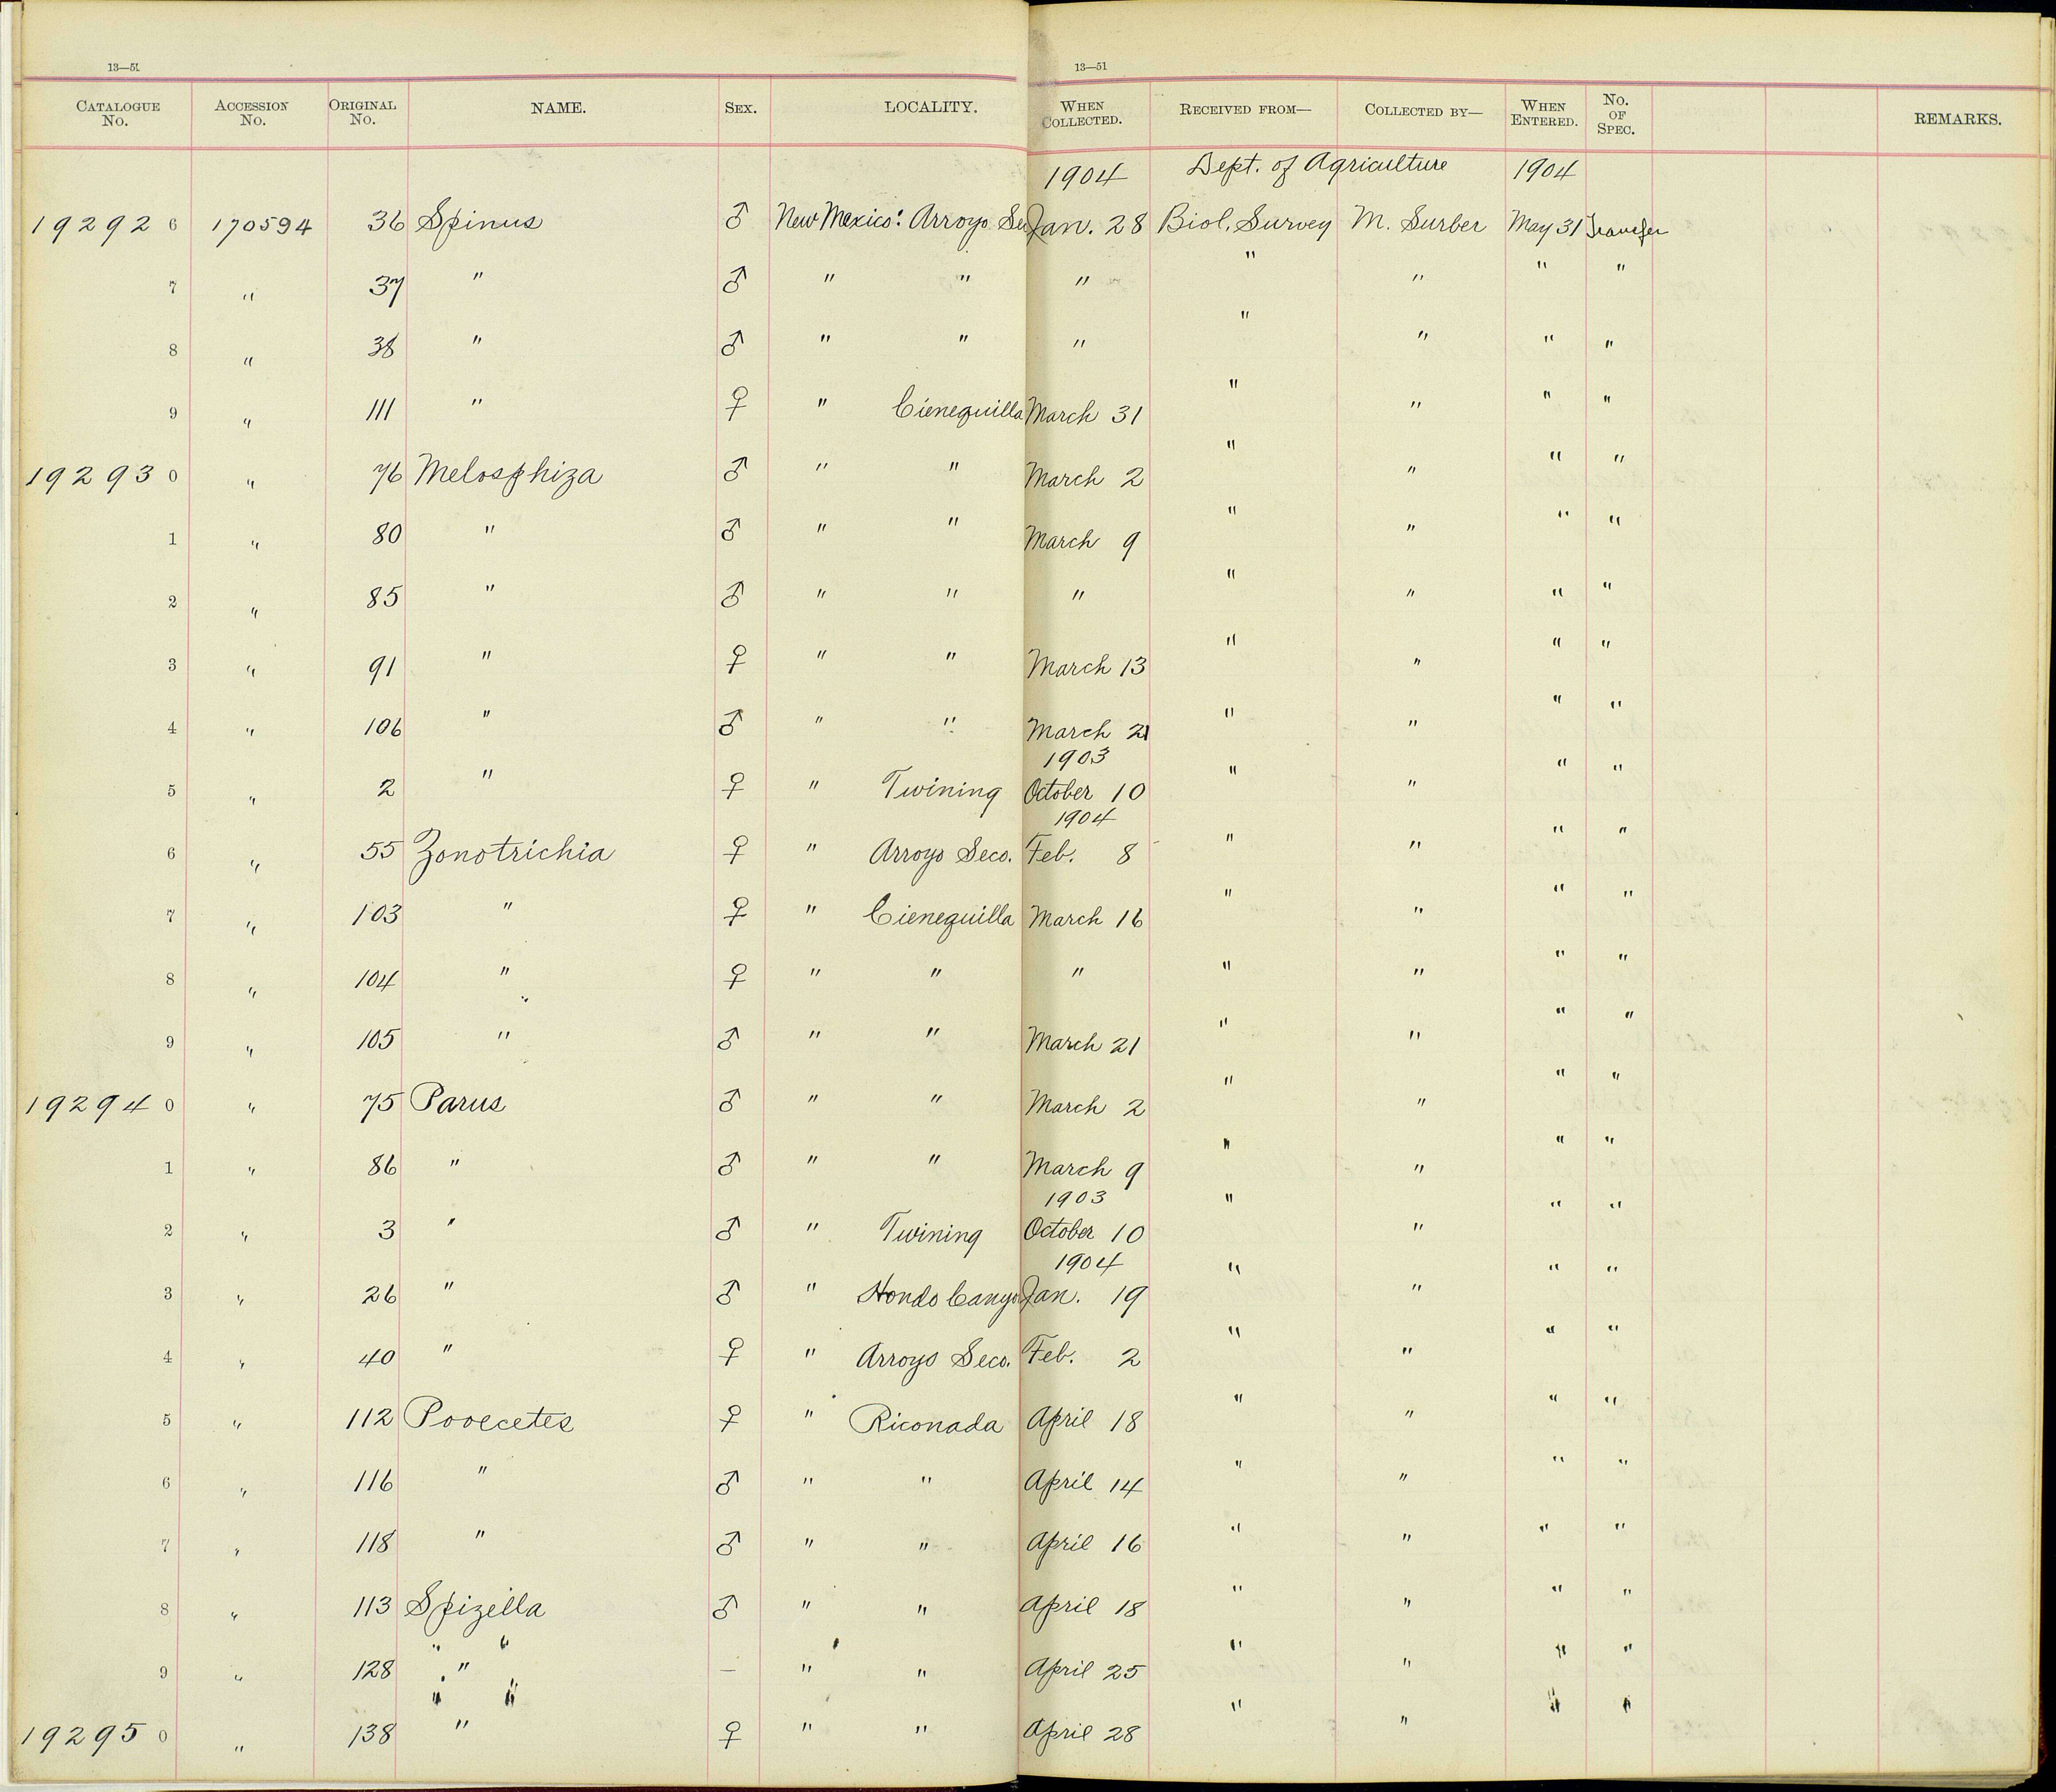 13—51 13—51
CATALOGUE No. ACCESSION No. ORIGINAL No. NAME. SEX. LOCALITY. WHEN COLLECTED. RECEIVED FROM— COLLECTED BY— WHEN ENTERED. No. OF SPEC. REMARKS.
1904 Dept. of Agriculture 1904
19292 6 170594 36 Spinus ♂ New Mexico: Arroyo Se Jan. 28 Biol. Survey M. Surber May 31 Transfer
7 " 37 " ♂ " " " " " " "
8 " 38 " ♂ " " " " " " "
9 " 111 " ♀ " Cienequilla March 31 " " " "
19293 0 " 76 Melosphiza ♂ " " March 2 " " " "
1 " 80 " ♂ " " March 9 " " " "
2 " 85 " ♂ " " " " " " "
3 " 91 " ♀ " " March 13 " " " "
4 " 106 " ♂ " " March 21 " " " "
1903
5 " 2 " ♀ " Twining October 10 " " " "
1904
6 " 55 Zonotrichia ♀ " Arroyo Seco. Feb. 8 " " " "
7 " 103 " ♀ " Cienequilla March 16 " " " "
8 " 104 " ♀ " " " " " " "
9 " 105 " ♂ " " March 21 " " " "
19294 0 " 75 Parus ♂ " " March 2 " " " "
1 " 86 " ♂ " " March 9 " " " "
1903
2 " 3 " ♂ " Twining October 10 " " " "
1904
3 " 26 " ♂ " Hondo Canyo Jan. 19 " " " "
4 " 40 " ♀ " Arroyo Seco. Feb. 2 " " " "
5 " 112 Pooecetes ♀ " Riconada April 18 " " " "
6 " 116 " ♂ " " April 14 " " " "
7 " 118 " ♂ " " April 16 " " " "
8 " 113 Spizella ♂ " " April 18 " " " "
9 " 128 " — " " April 25 " " " "
19295 0 " 138 " ♀ " " April 28 " " " "